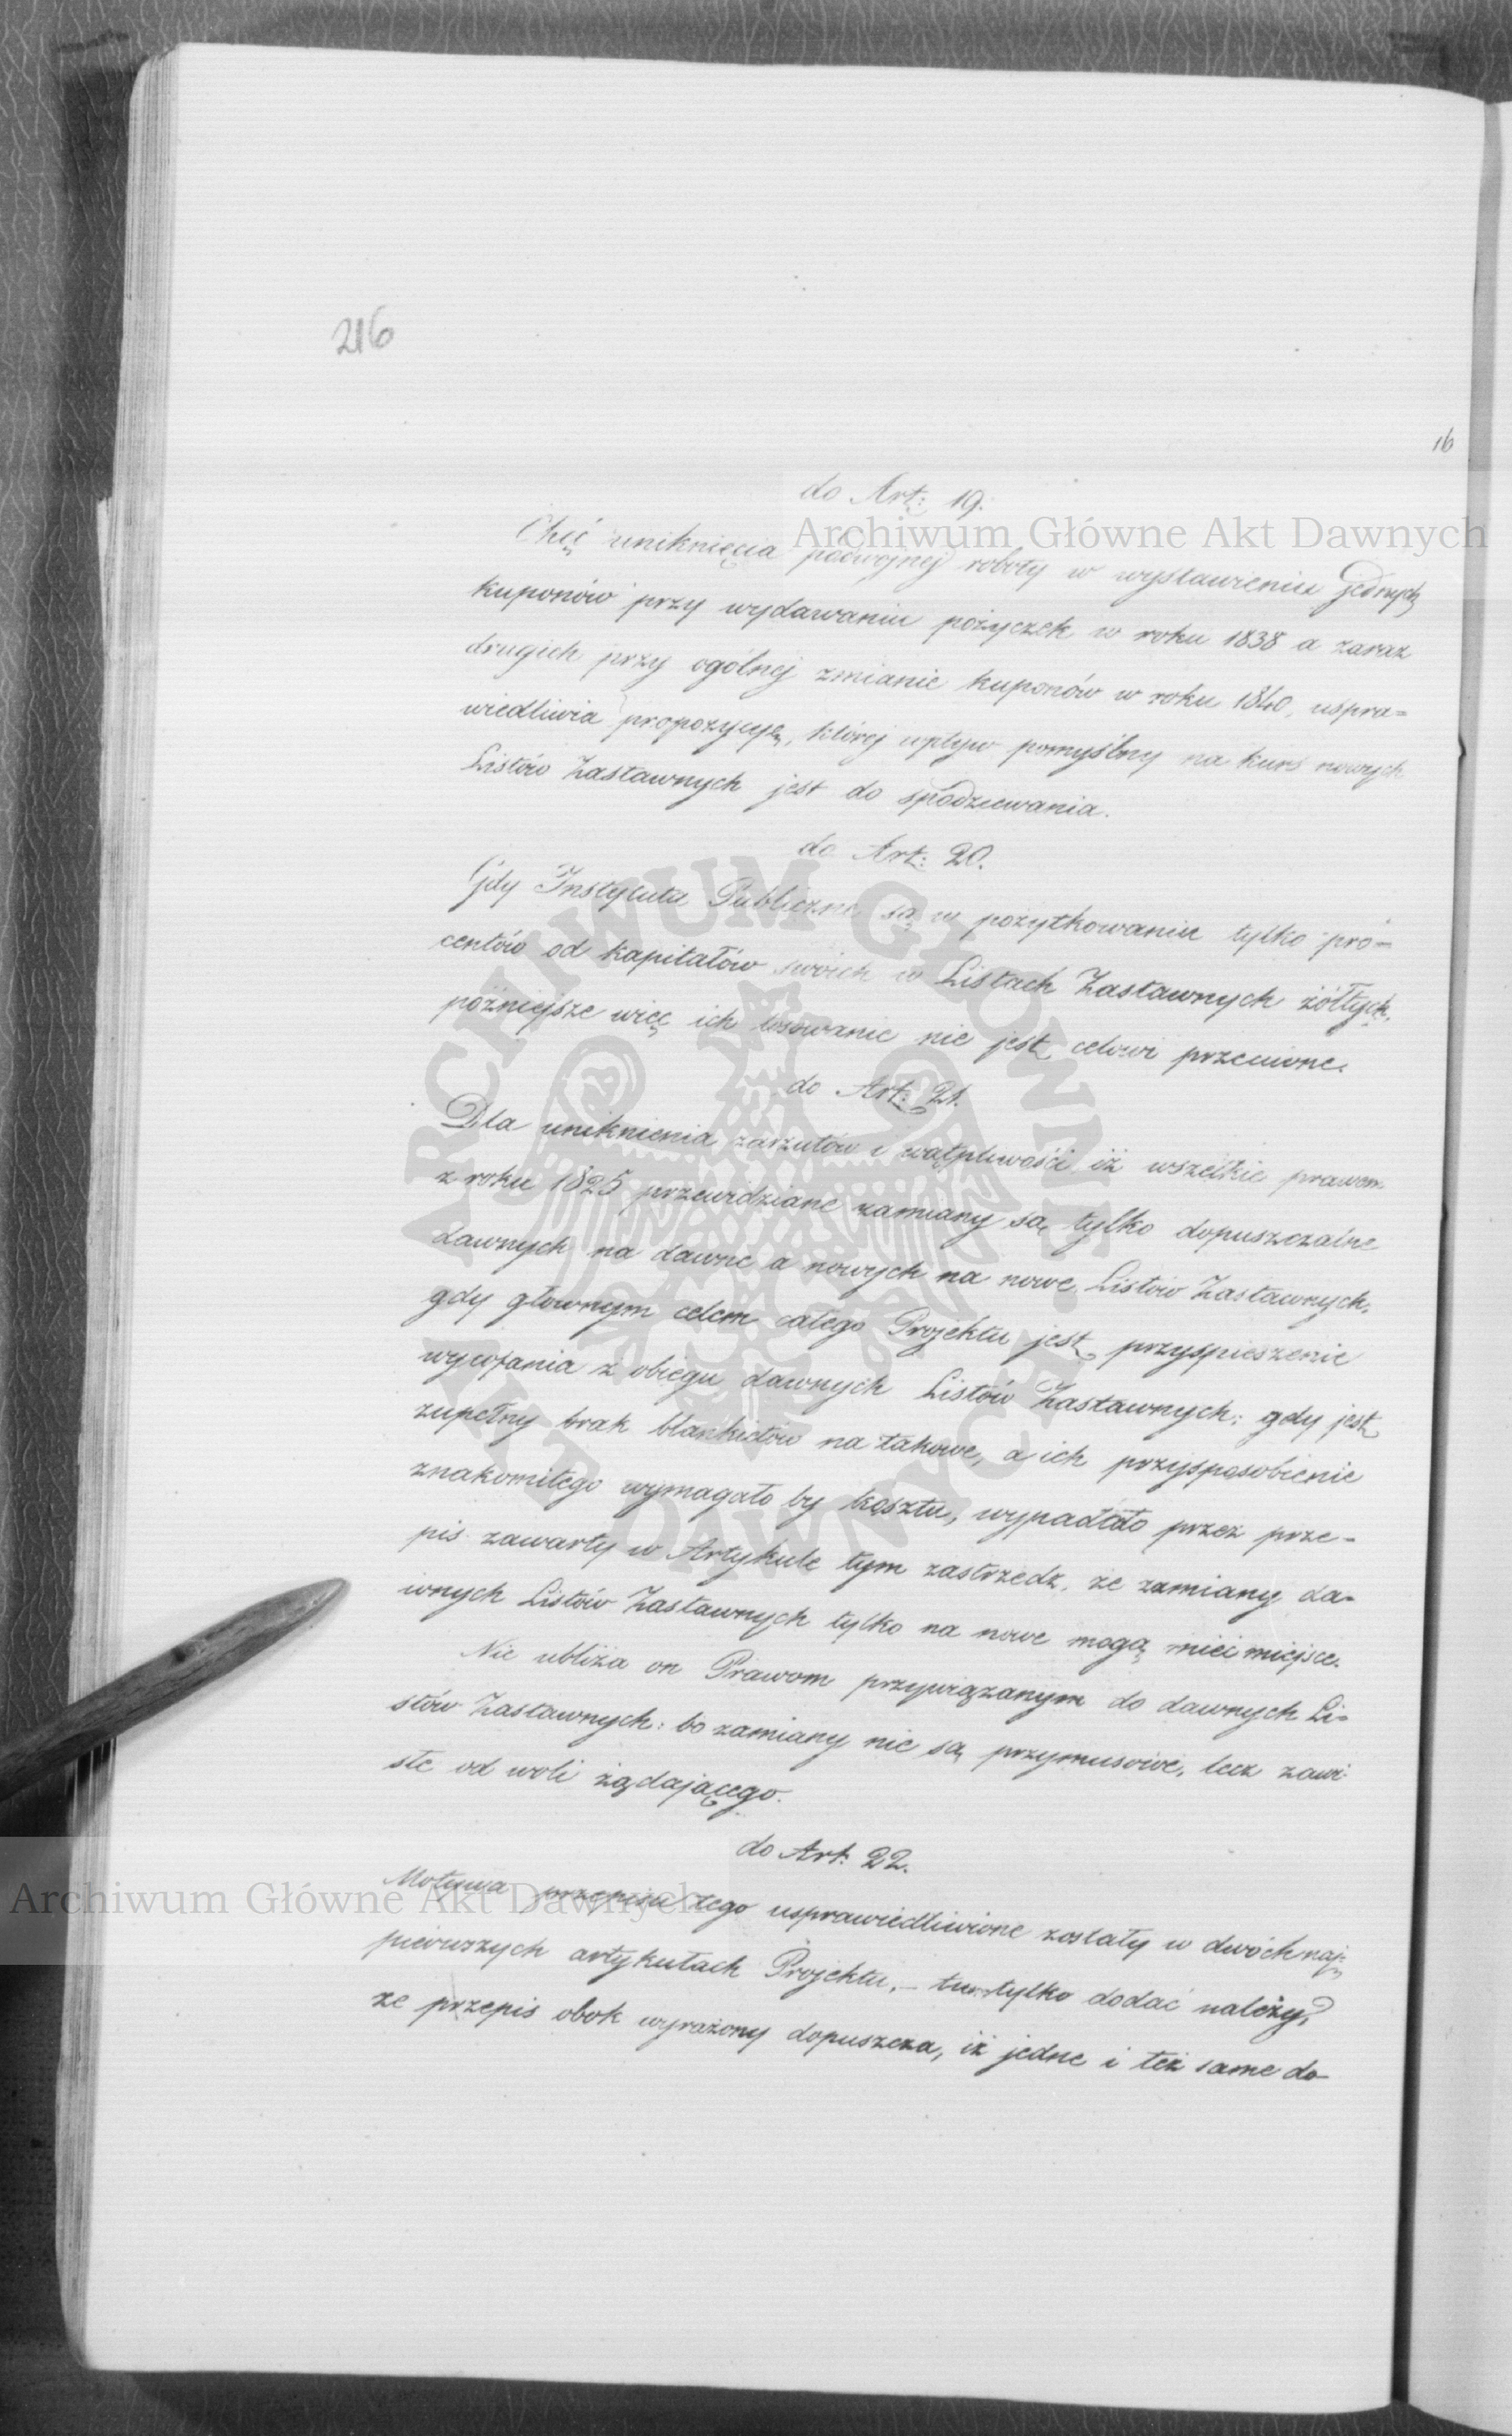 216
16
do Art: 19.
Chęć uniknięcia podwojnej roboty w wystawieniu jednych
kuponów przy wydawaniu pożyczek w roku 1838 a zaraz
drugich przy ogólnej zmianie kuponów w roku 1840, uspra=
wiedliwia propozycyę, której wpływ pomyślny na kurs nowych
Listów Zastawnych jest do spodziewania.
do Art: 20.
Gdy Instytuta Publiczne są w pożytkowaniu tylko pro=
centów od kapitałów swoich w Listach Zastawnych żółtych,
późniejsze więc ich losowanie nie jest celowi przeciwne.
do Art: 21.
Dla uniknienia zarzutów i wątpliwości iż wszelkie prawem
z roku 1825 przewidziane zamiany są tylko dopuszczalne
dawnych na dawne a nowych na nowe Listów Zastawnych,
gdy głownym celem całego Projektu jest przyspieszenie
wywołania z obiegu dawnych Listów Zastawnych: gdy jest
zupełny brak blankietów na takowe, a ich przysposobienie
znakomitego wymagało by kosztu, wypadało przez prze=
pis zawarty w Artykule tym zastrzedz, że zamiany da=
wnych Listów Zastawnych tylko na nowe mogą mieć miejsce.
Nie ubliża on Prawom przywiązanym do dawnych Li=
stów Zastawnych: bo zamiany nie są przymusowe, lecz zawi=
słe od woli żądającego.
do Art: 22.
Motywa przepisu tego usprawiedliwione zostały w dwóch naj=
pierwszych artykułach Projektu, – tu tylko dodać należy,
że przepis obok wyrażony dopuszcza, iż jedne i też same do=
Archiwum Główne Akt Dawnych
ARCHIWUM GŁÓWNE AKT DAWNYCH
Archiwum Główne Akt Dawnych